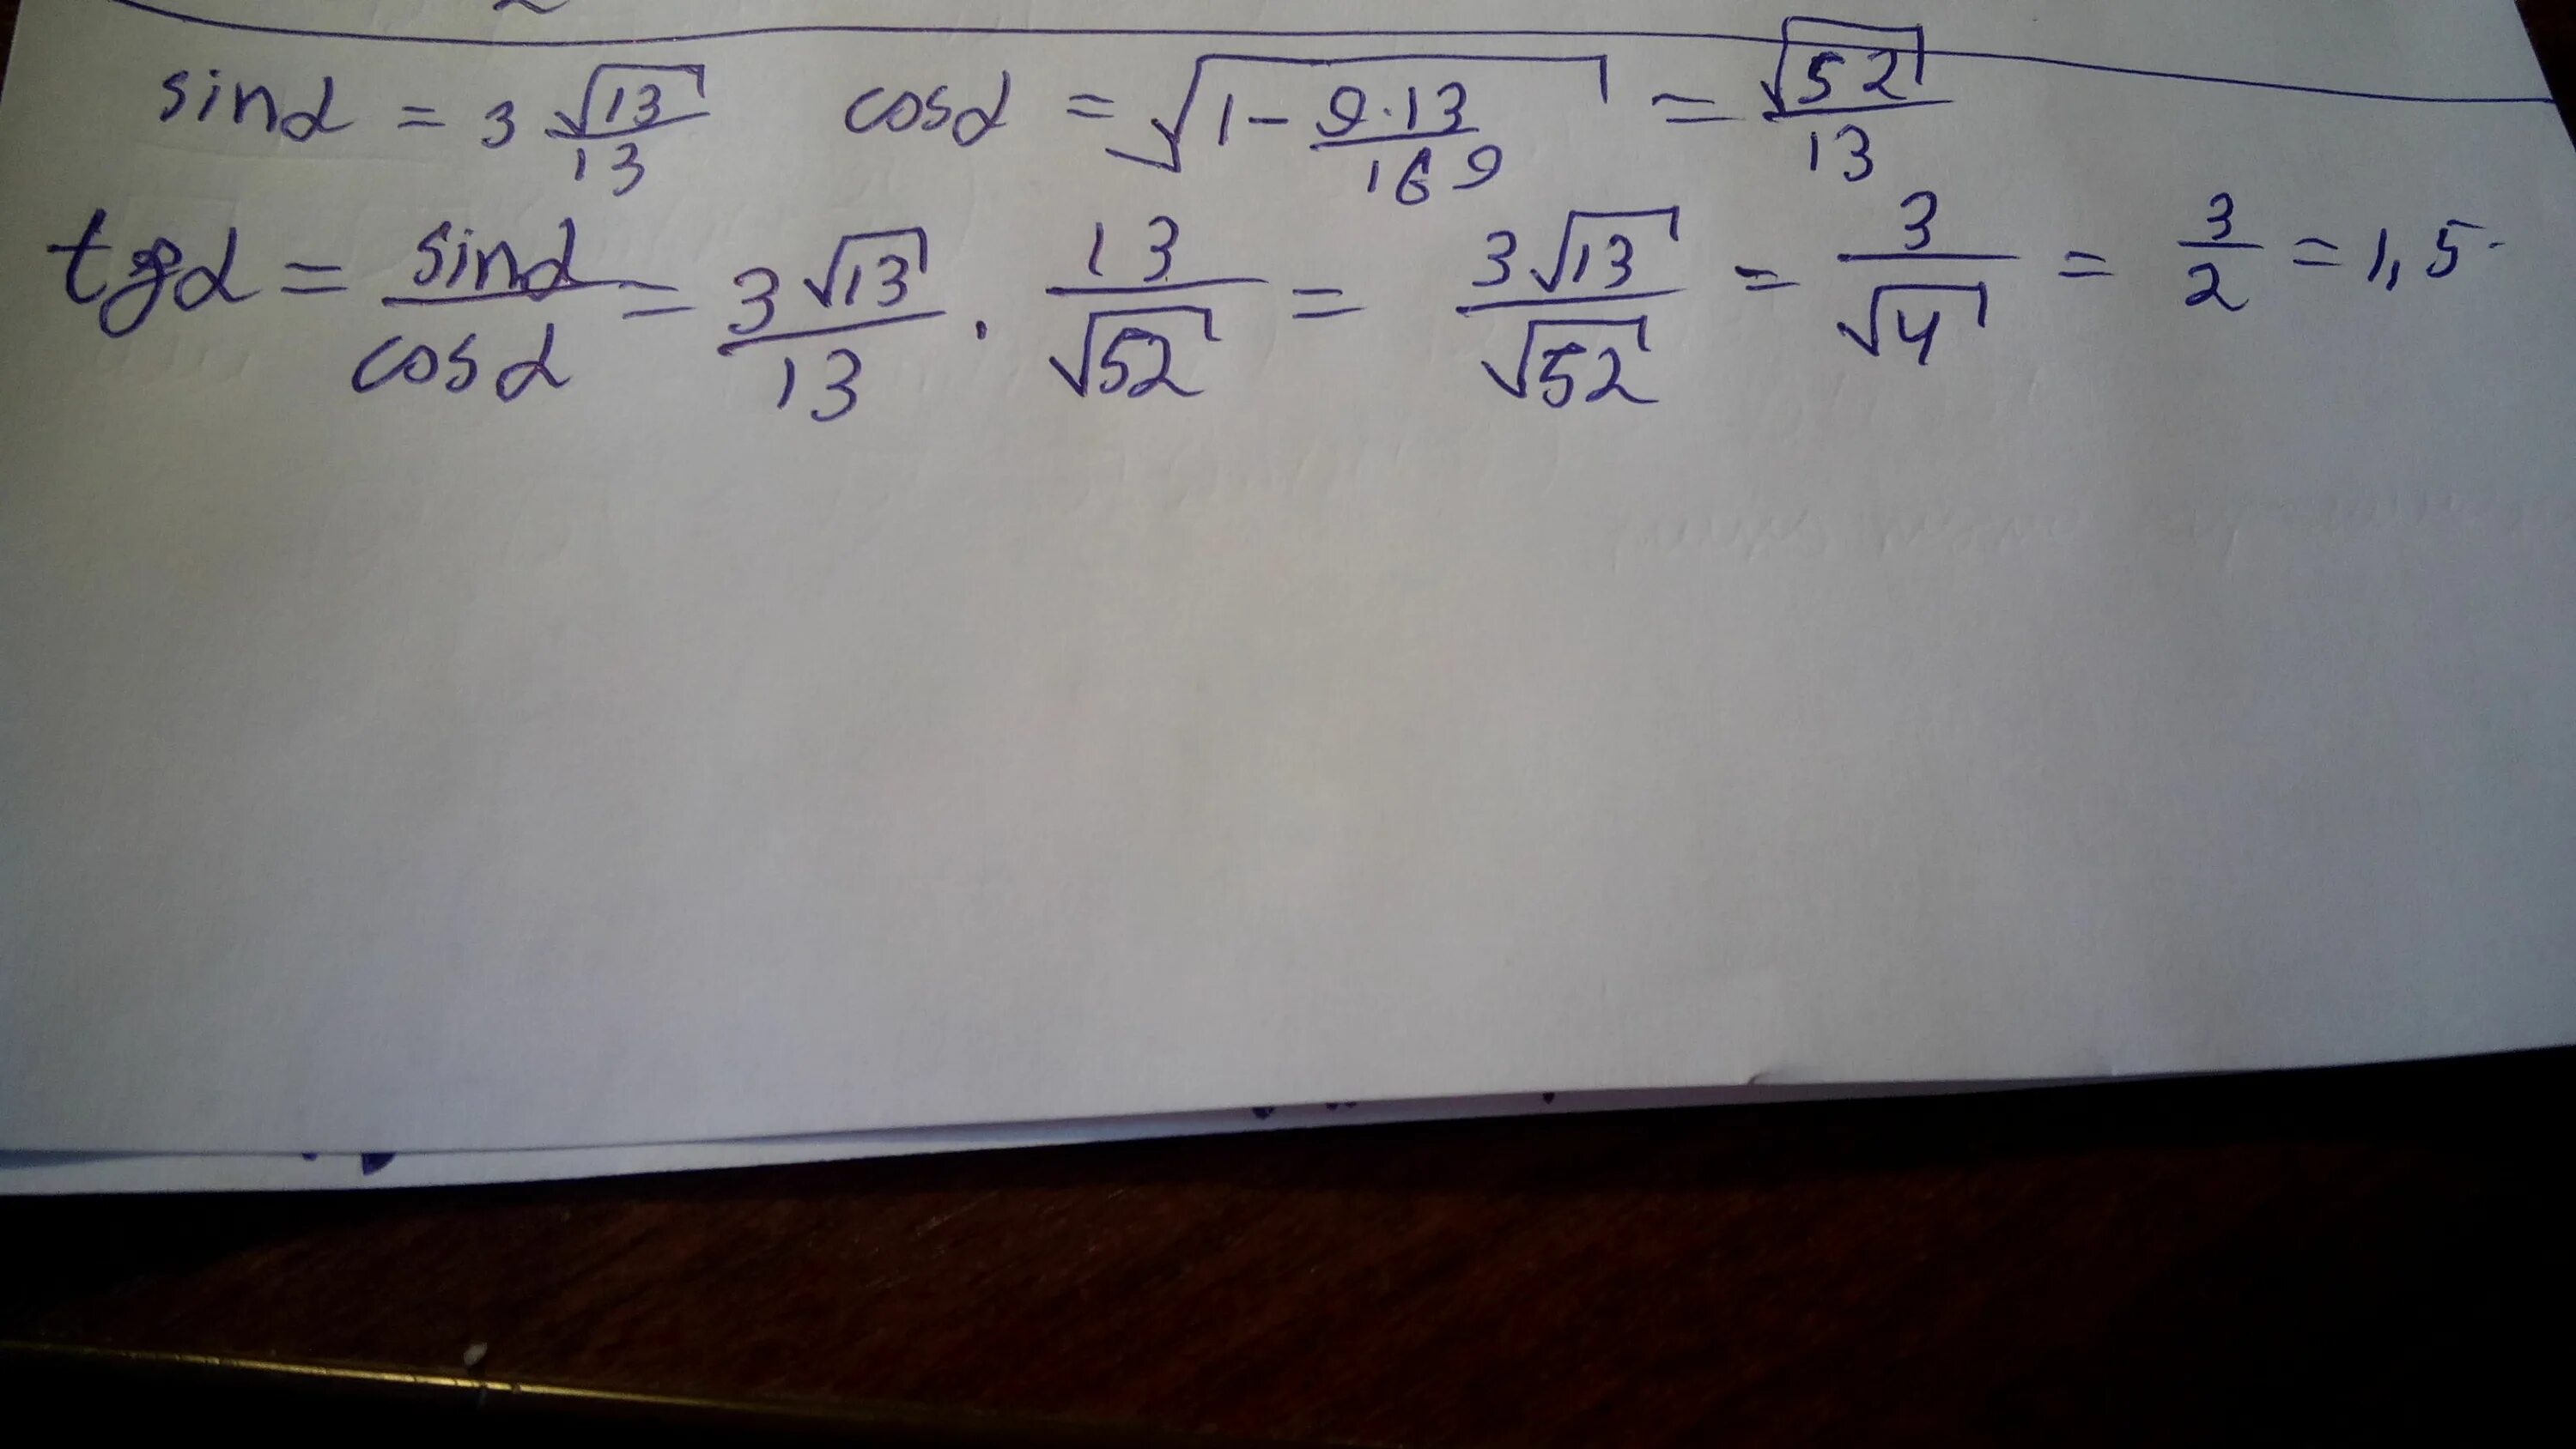 sinα = 3 √13/13 cosα = √(1 - 9·13/169) = √52/13
tgα = sinα/cosα = 3√13/13 · 13/√52 = 3√13/√52 = 3/√4 = 3/2 = 1,5